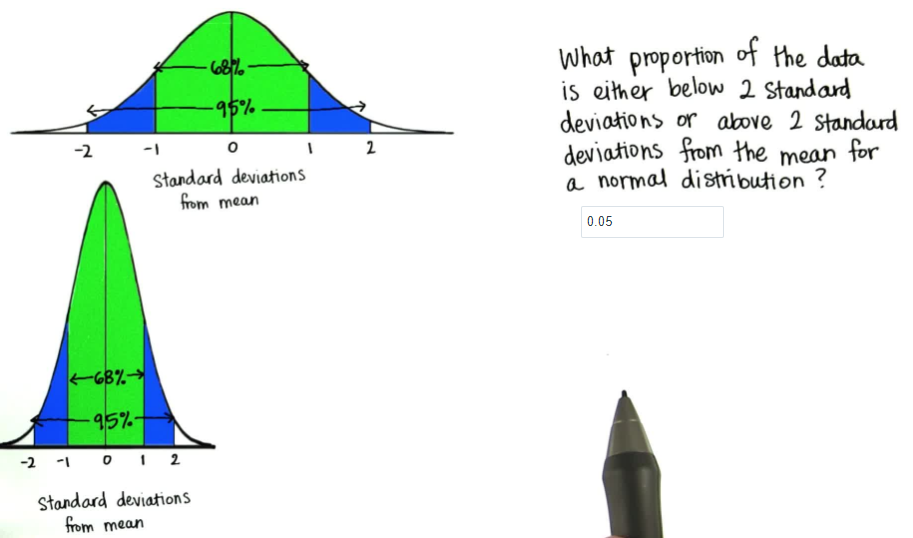 68%
95%
-2 -1 0 1 2
Standard deviations
from mean
68%
95%
-2 -1 0 1 2
Standard deviations
from mean
What proportion of the data
is either below 2 standard
deviations or above 2 standard
deviations from the mean for
a normal distribution?
0.05